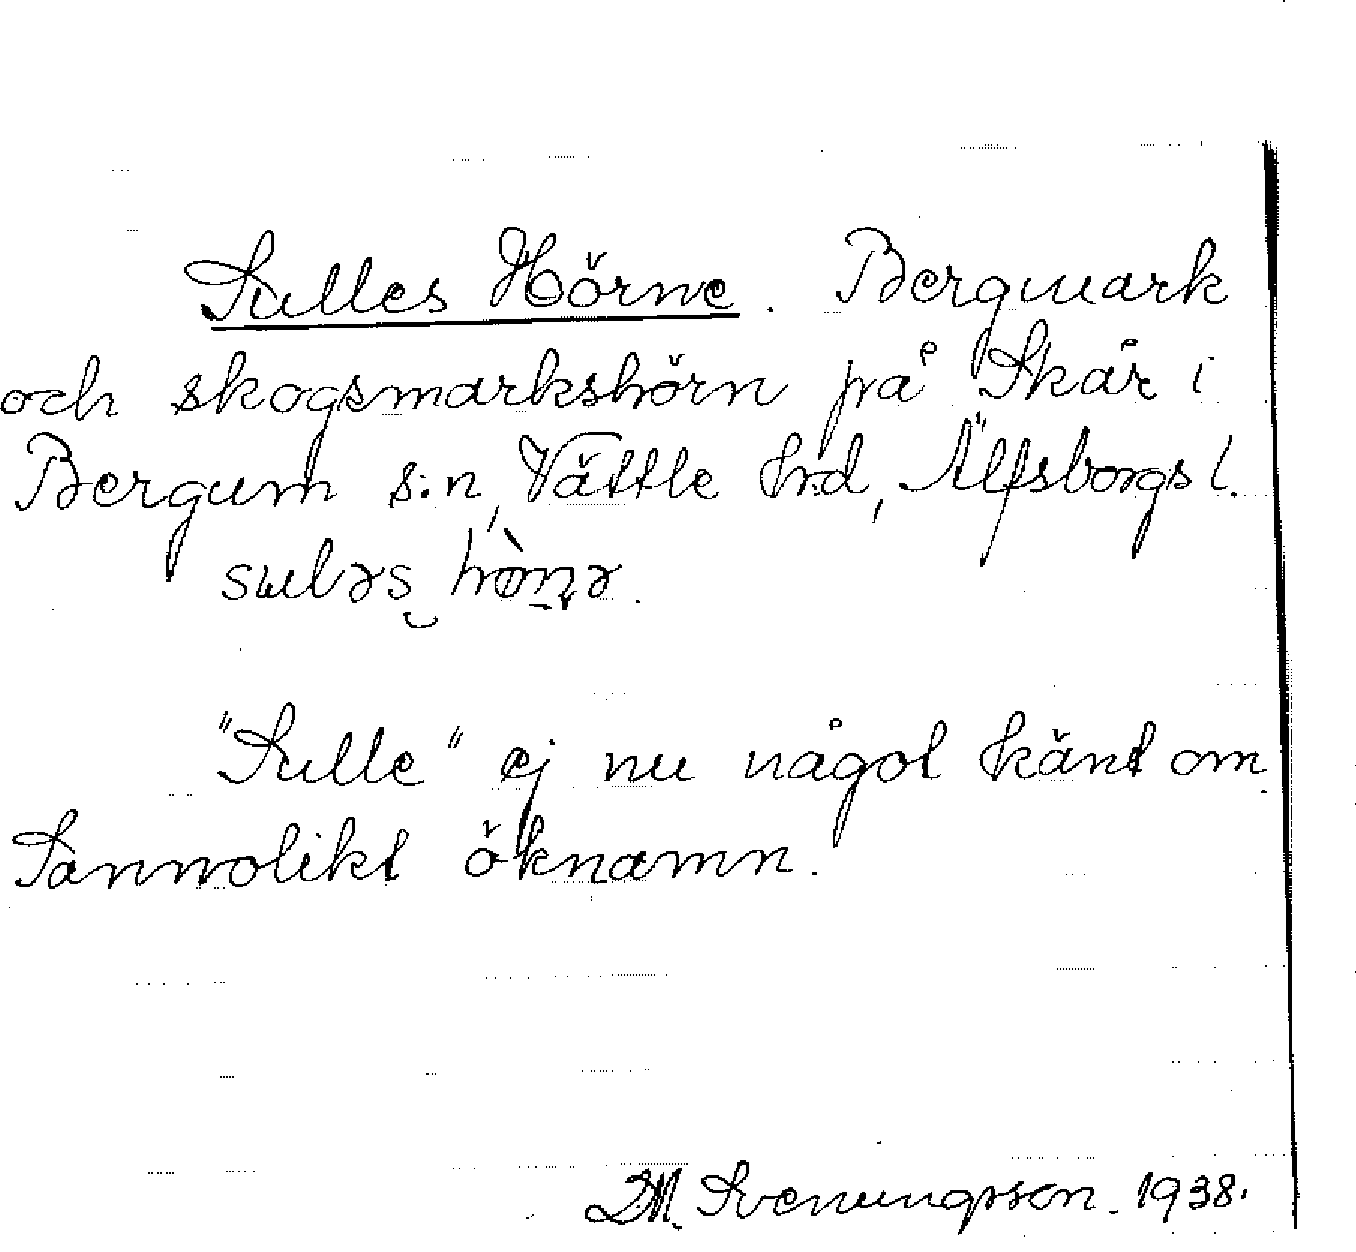 Sulles Hörne. Bergmark
och skogsmarkshörn på Skår i
Bergum s:n, Vättle hrd, Älfsborgs l.
"Sulle" ej nu något känt om
Sannolikt öknamn.
Svenungsson. 1938.